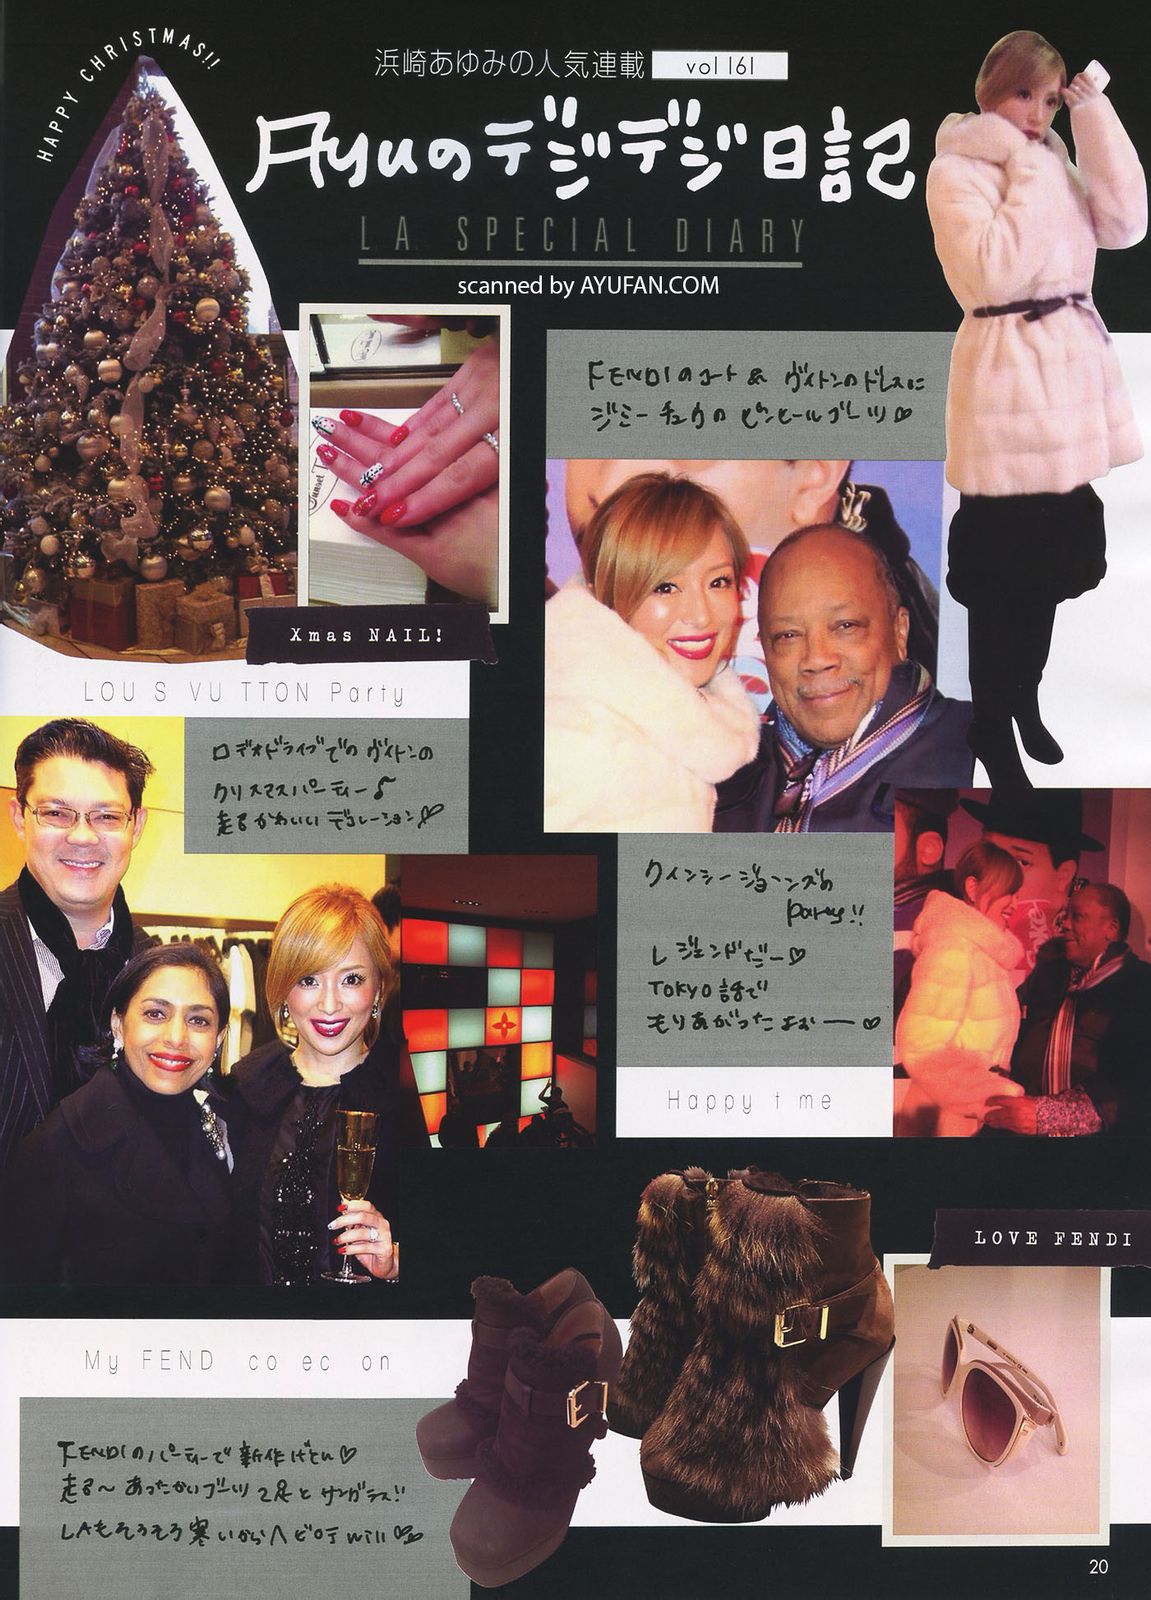 HAPPY CHRISTMAS!!
浜崎あゆみの人気連載 vol 161
Ayuのデジデジ日記
L.A. SPECIAL DIARY
scanned by AYUFAN.COM
FENDIのコート & ヴィトンのドレスに
ジミーチュウのピンヒールブーツ♡
Sunset
Xmas NAIL!
LOU S VU TTON Party
ロデオドライブでのヴィトンの
クリスマスパーティー♪
走るかわいいデコレーション♡
クインシージョーンズの
party!!
レジェンドだー♡
TOKYO話で
もりあがったよぉー♡
Happy t me
LOVE FENDI
My FEND co ec on
FENDIのパーティーで新作げとん♡
走る〜あったかいブーツ2足とサングラス!!
LAもそろそろ寒いからヘビロテwill♡
20